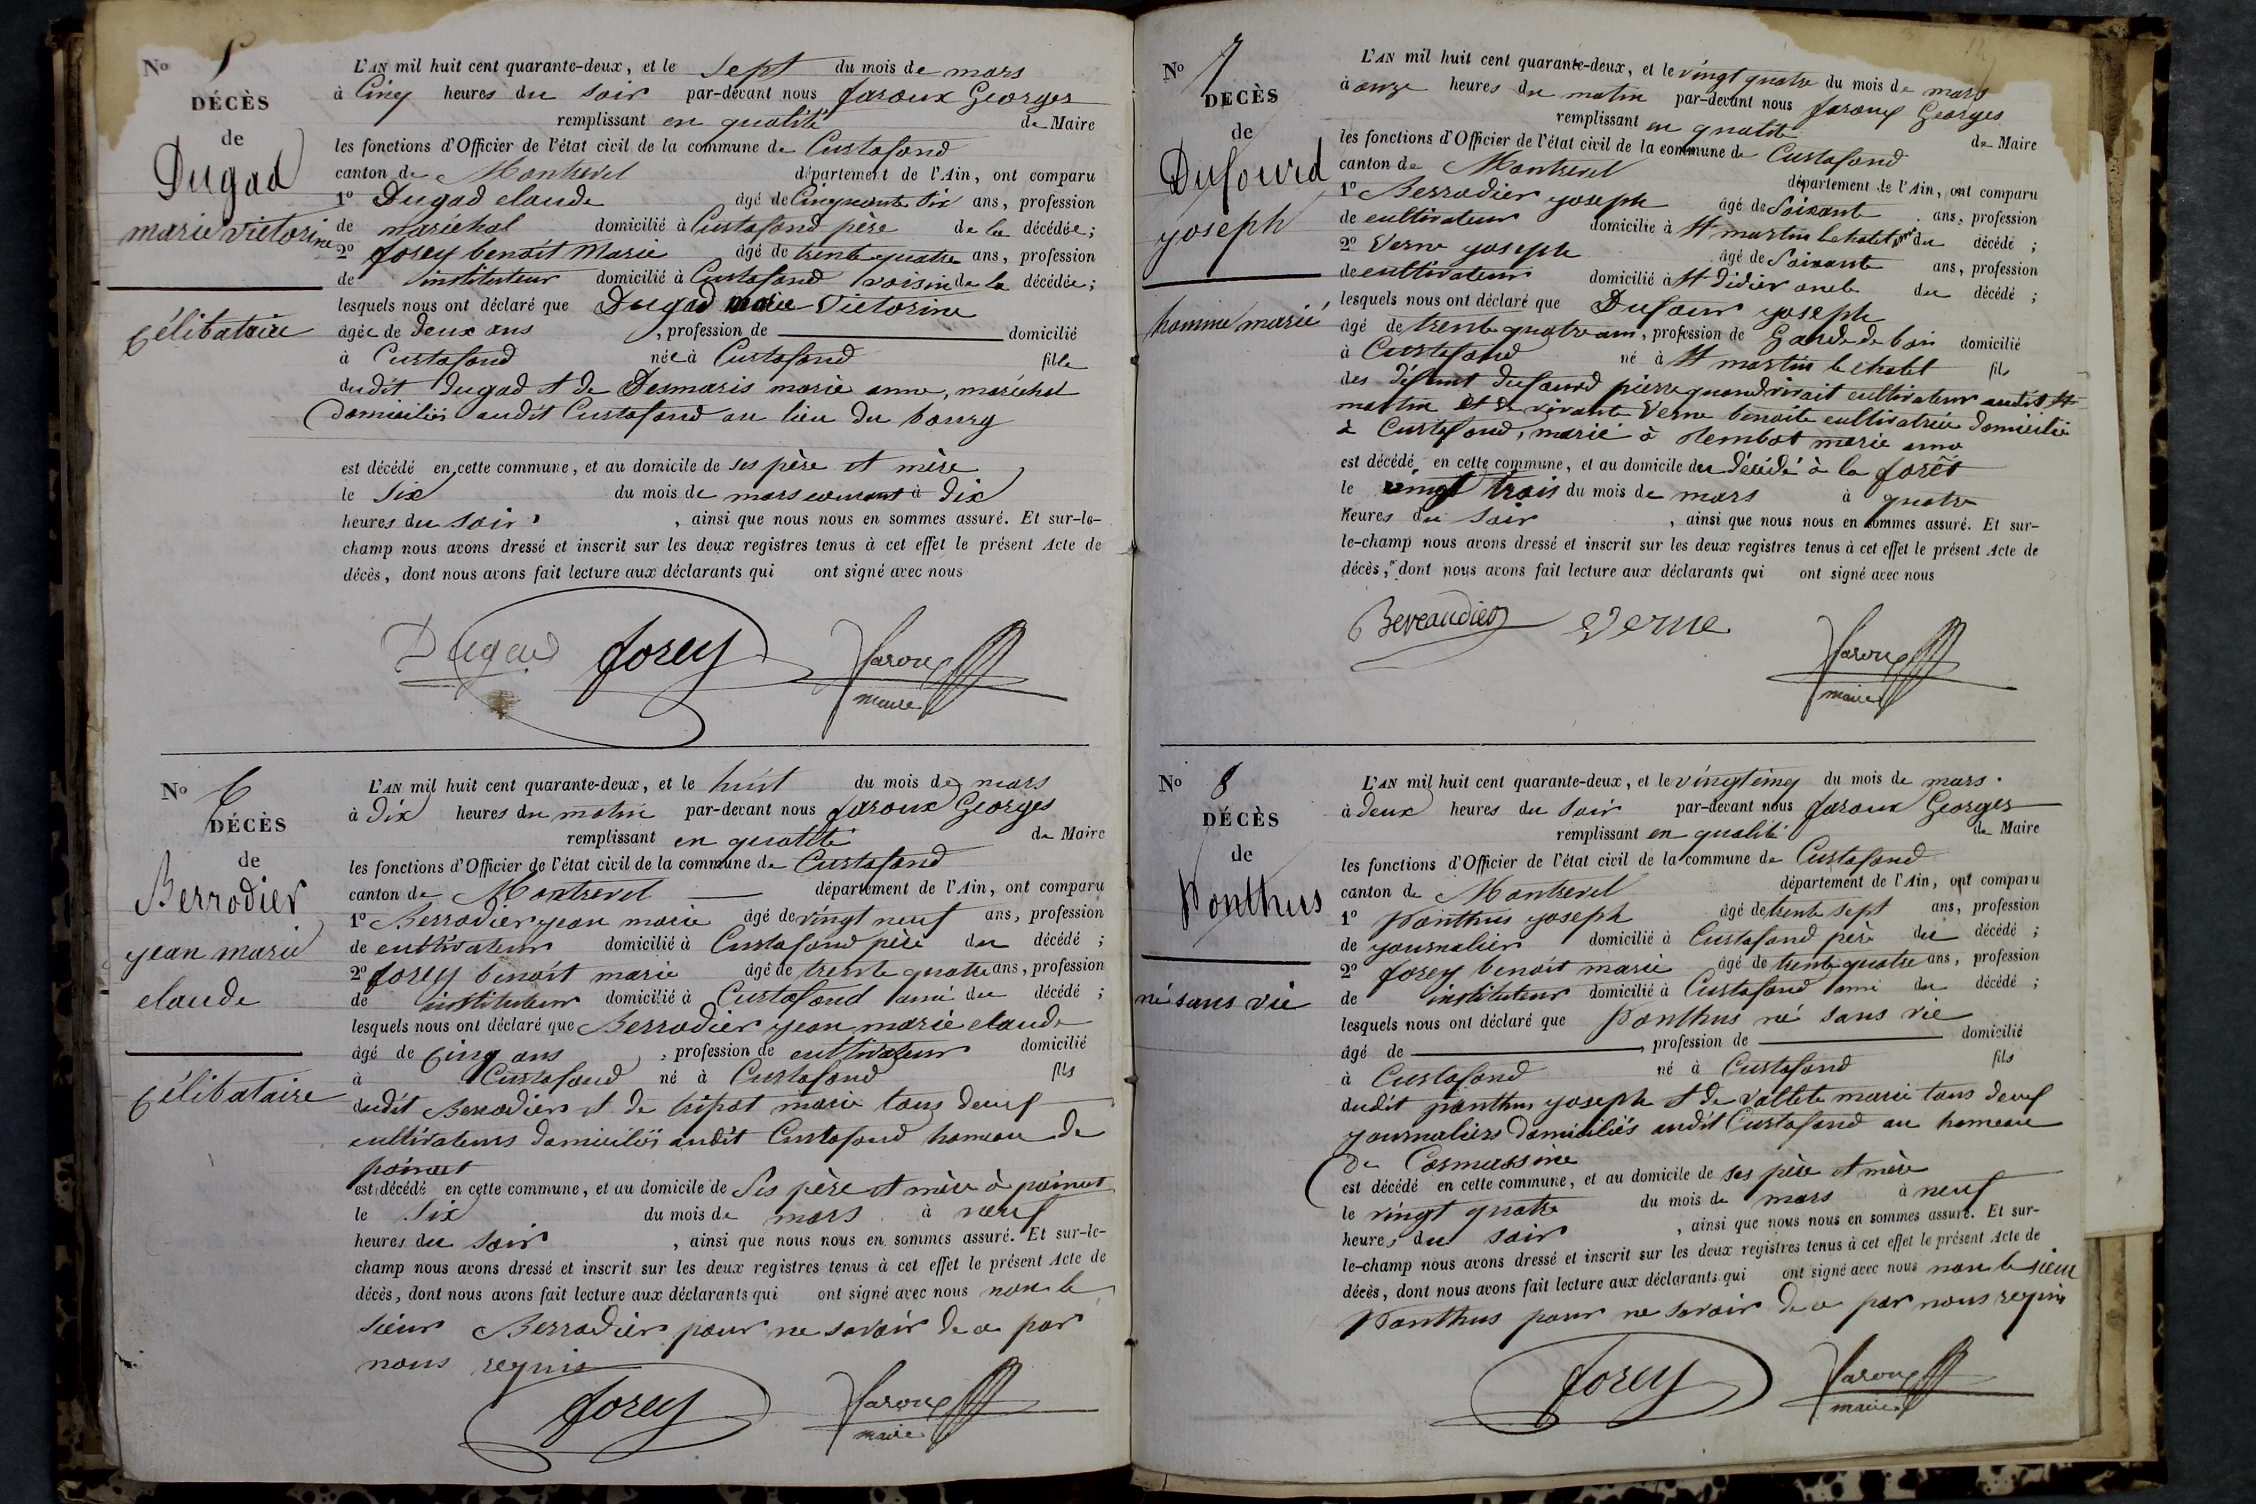 No 5
DÉCÈS
de
Dugad
marie victorine
célibataire
L'AN mil huit cent quarante-deux, et le sept du mois de mars
à cinq heures du soir par-devant nous faroux Georges
remplissant en qualité de Maire
les fonctions d'Officier de l'état civil de la commune de Curtafond
canton de Montrevel département de l'Ain, ont comparu
1o Dugad claude âgé de cinquante six ans, profession
de maréchal domicilié à Curtafond père de la décédée;
2o forey benoit Marie âgé de trente quatre ans, profession
de instituteur domicilié à Curtafond voisin de la décédée;
lesquels nous ont déclaré que Dugad marie Victorine
âgée de deux ans, profession de domicilié
à Curtafond née à Curtafond fille
dudit dugad et de Desmaris marie anne, maréchal
domiciliés audit Curtafond au lieu du bourg
est décédé en cette commune, et au domicile de ses père et mère
le six du mois de mars courant à dix
heures du soir, ainsi que nous nous en sommes assuré. Et sur-le-
champ nous avons dressé et inscrit sur les deux registres tenus à cet effet le présent Acte de
décès, dont nous avons fait lecture aux déclarants qui ont signé avec nous
Dugad forey faroux
maire
No 6
DÉCÈS
de
Berrodier
jean marie
claude
célibataire
L'AN mil huit cent quarante-deux, et le huit du mois de mars
à dix heures du matin par-devant nous faroux Georges
remplissant en qualité de Maire
les fonctions d'Officier de l'état civil de la commune de Curtafond
canton de Montrevel département de l'Ain, ont comparu
1o Berrodier jean marie âgé de vingt neuf ans, profession
de cultivateur domicilié à Curtafond père du décédé;
2o forey benoit marie âgé de trente quatre ans, profession
de instituteur domicilié à Curtafond ami du décédé;
lesquels nous ont déclaré que Berrodier jean marie claude
âgé de cinq ans, profession de cultivateur domicilié
à Curtafond né à Curtafond fils
dudit Berrodier et de tripot marie tous deux
cultivateurs domiciliés audit Curtafond hameau de
poinut
est décédé en cette commune, et au domicile de ses père et mère à poinut
le six du mois de mars à neuf
heures du soir, ainsi que nous nous en sommes assuré. Et sur-le-
champ nous avons dressé et inscrit sur les deux registres tenus à cet effet le présent Acte de
décès, dont nous avons fait lecture aux déclarants qui ont signé avec nous non le
sieur Berrodier pour ne savoir de ce par
nous requis
forey faroux
maire
No 7
DÉCÈS
de
Dufourd
joseph
homme marié
L'AN mil huit cent quarante-deux, et le vingt quatre du mois de mars
à onze heures du matin par-devant nous faroux Georges
remplissant en qualité de Maire
les fonctions d'Officier de l'état civil de la commune de Curtafond
canton de Montrevel département de l'Ain, ont comparu
1o Berrodier joseph âgé de soixante ans, profession
de cultivateur domicilié à St martin le chatel du décédé;
2o Verne joseph âgé de soixante ans, profession
de cultivateur domicilié à St didier oncle du décédé;
lesquels nous ont déclaré que Dufour joseph
âgé de trente quatre ans, profession de Garde de bois domicilié
à Curtafond né à St martin le chatel fils
des défunt dufourd pierre quand vivait cultivateur audit St
martin et de vivante Verne benoite cultivatrice domiciliée
à Curtafond, marié à Rembot marie anne
est décédé en cette commune, et au domicile du décédé à la forêt
le vingt trois du mois de mars à quatre
heures du soir, ainsi que nous nous en sommes assuré. Et sur-
le-champ nous avons dressé et inscrit sur les deux registres tenus à cet effet le présent Acte de
décès, dont nous avons fait lecture aux déclarants qui ont signé avec nous
Bereaudier Verne
faroux
maire
No 8
DÉCÈS
de
Ponthus
né sans vie
L'AN mil huit cent quarante-deux, et le vingt cinq du mois de mars
à deux heures du soir par-devant nous faroux Georges
remplissant en qualité de Maire
les fonctions d'Officier de l'état civil de la commune de Curtafond
canton de Montrevel département de l'Ain, ont comparu
1o Ponthus joseph âgé de trente sept ans, profession
de journalier domicilié à Curtafond père du décédé;
2o forey benoit marie âgé de trente quatre ans, profession
de instituteur domicilié à Curtafond ami du décédé;
lesquels nous ont déclaré que Ponthus né sans vie
âgé de, profession de domicilié
à Curtafond né à Curtafond fils
dudit ponthus joseph et de vallete marie tous deux
journaliers domiciliés audit Curtafond au hameau
de Cormassine
est décédé en cette commune, et au domicile de ses père et mère
le vingt quatre du mois de mars à neuf
heures du soir, ainsi que nous nous en sommes assuré. Et sur-
le-champ nous avons dressé et inscrit sur les deux registres tenus à cet effet le présent Acte de
décès, dont nous avons fait lecture aux déclarants qui ont signé avec nous non le sieur
Ponthus pour ne savoir de ce par nous requis
forey faroux
maire